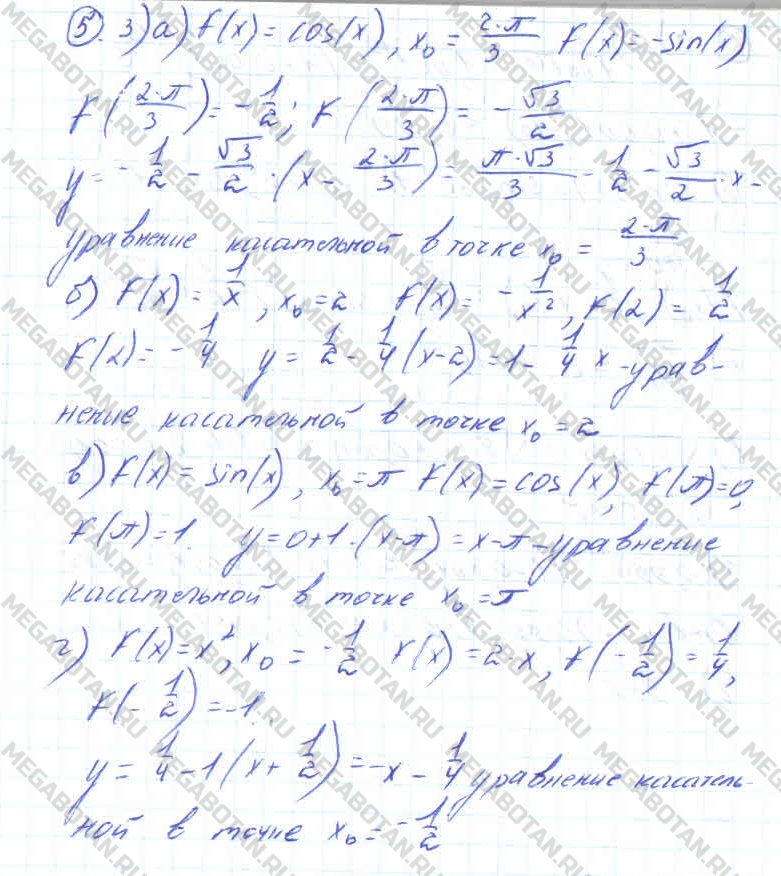 ⑤. 3) а) f(x) = cos(x), x₀ = 2·π/3 f(x) = -sin(x)
f(2·π/3) = -1/2; f(2·π/3) = -√3/2
y = -1/2 - √3/2 · (x - 2·π/3) = π·√3/3 - 1/2 - √3/2 · x -
уравнение касательной в точке x₀ = 2·π/3
б) f(x) = 1/x, x₀ = 2 f(x) = -1/x², f(2) = 1/2
f(2) = -1/4 y = 1/2 - 1/4 (x-2) = 1 - 1/4 x - урав-
нение касательной в точке x₀ = 2
в) f(x) = sin(x), x₀ = π f(x) = cos(x), f(π) = 0,
f(π) = 1. y = 0+1·(x-π) = x-π - уравнение
касательной в точке x₀ = π
г) f(x) = x², x₀ = -1/2 f(x) = 2·x, f(-1/2) = 1/4,
f(-1/2) = -1.
y = 1/4 - 1(x + 1/2) = -x - 1/4 уравнение касатель-
ной в точке x₀ = -1/2
MEGABOTAN.RU